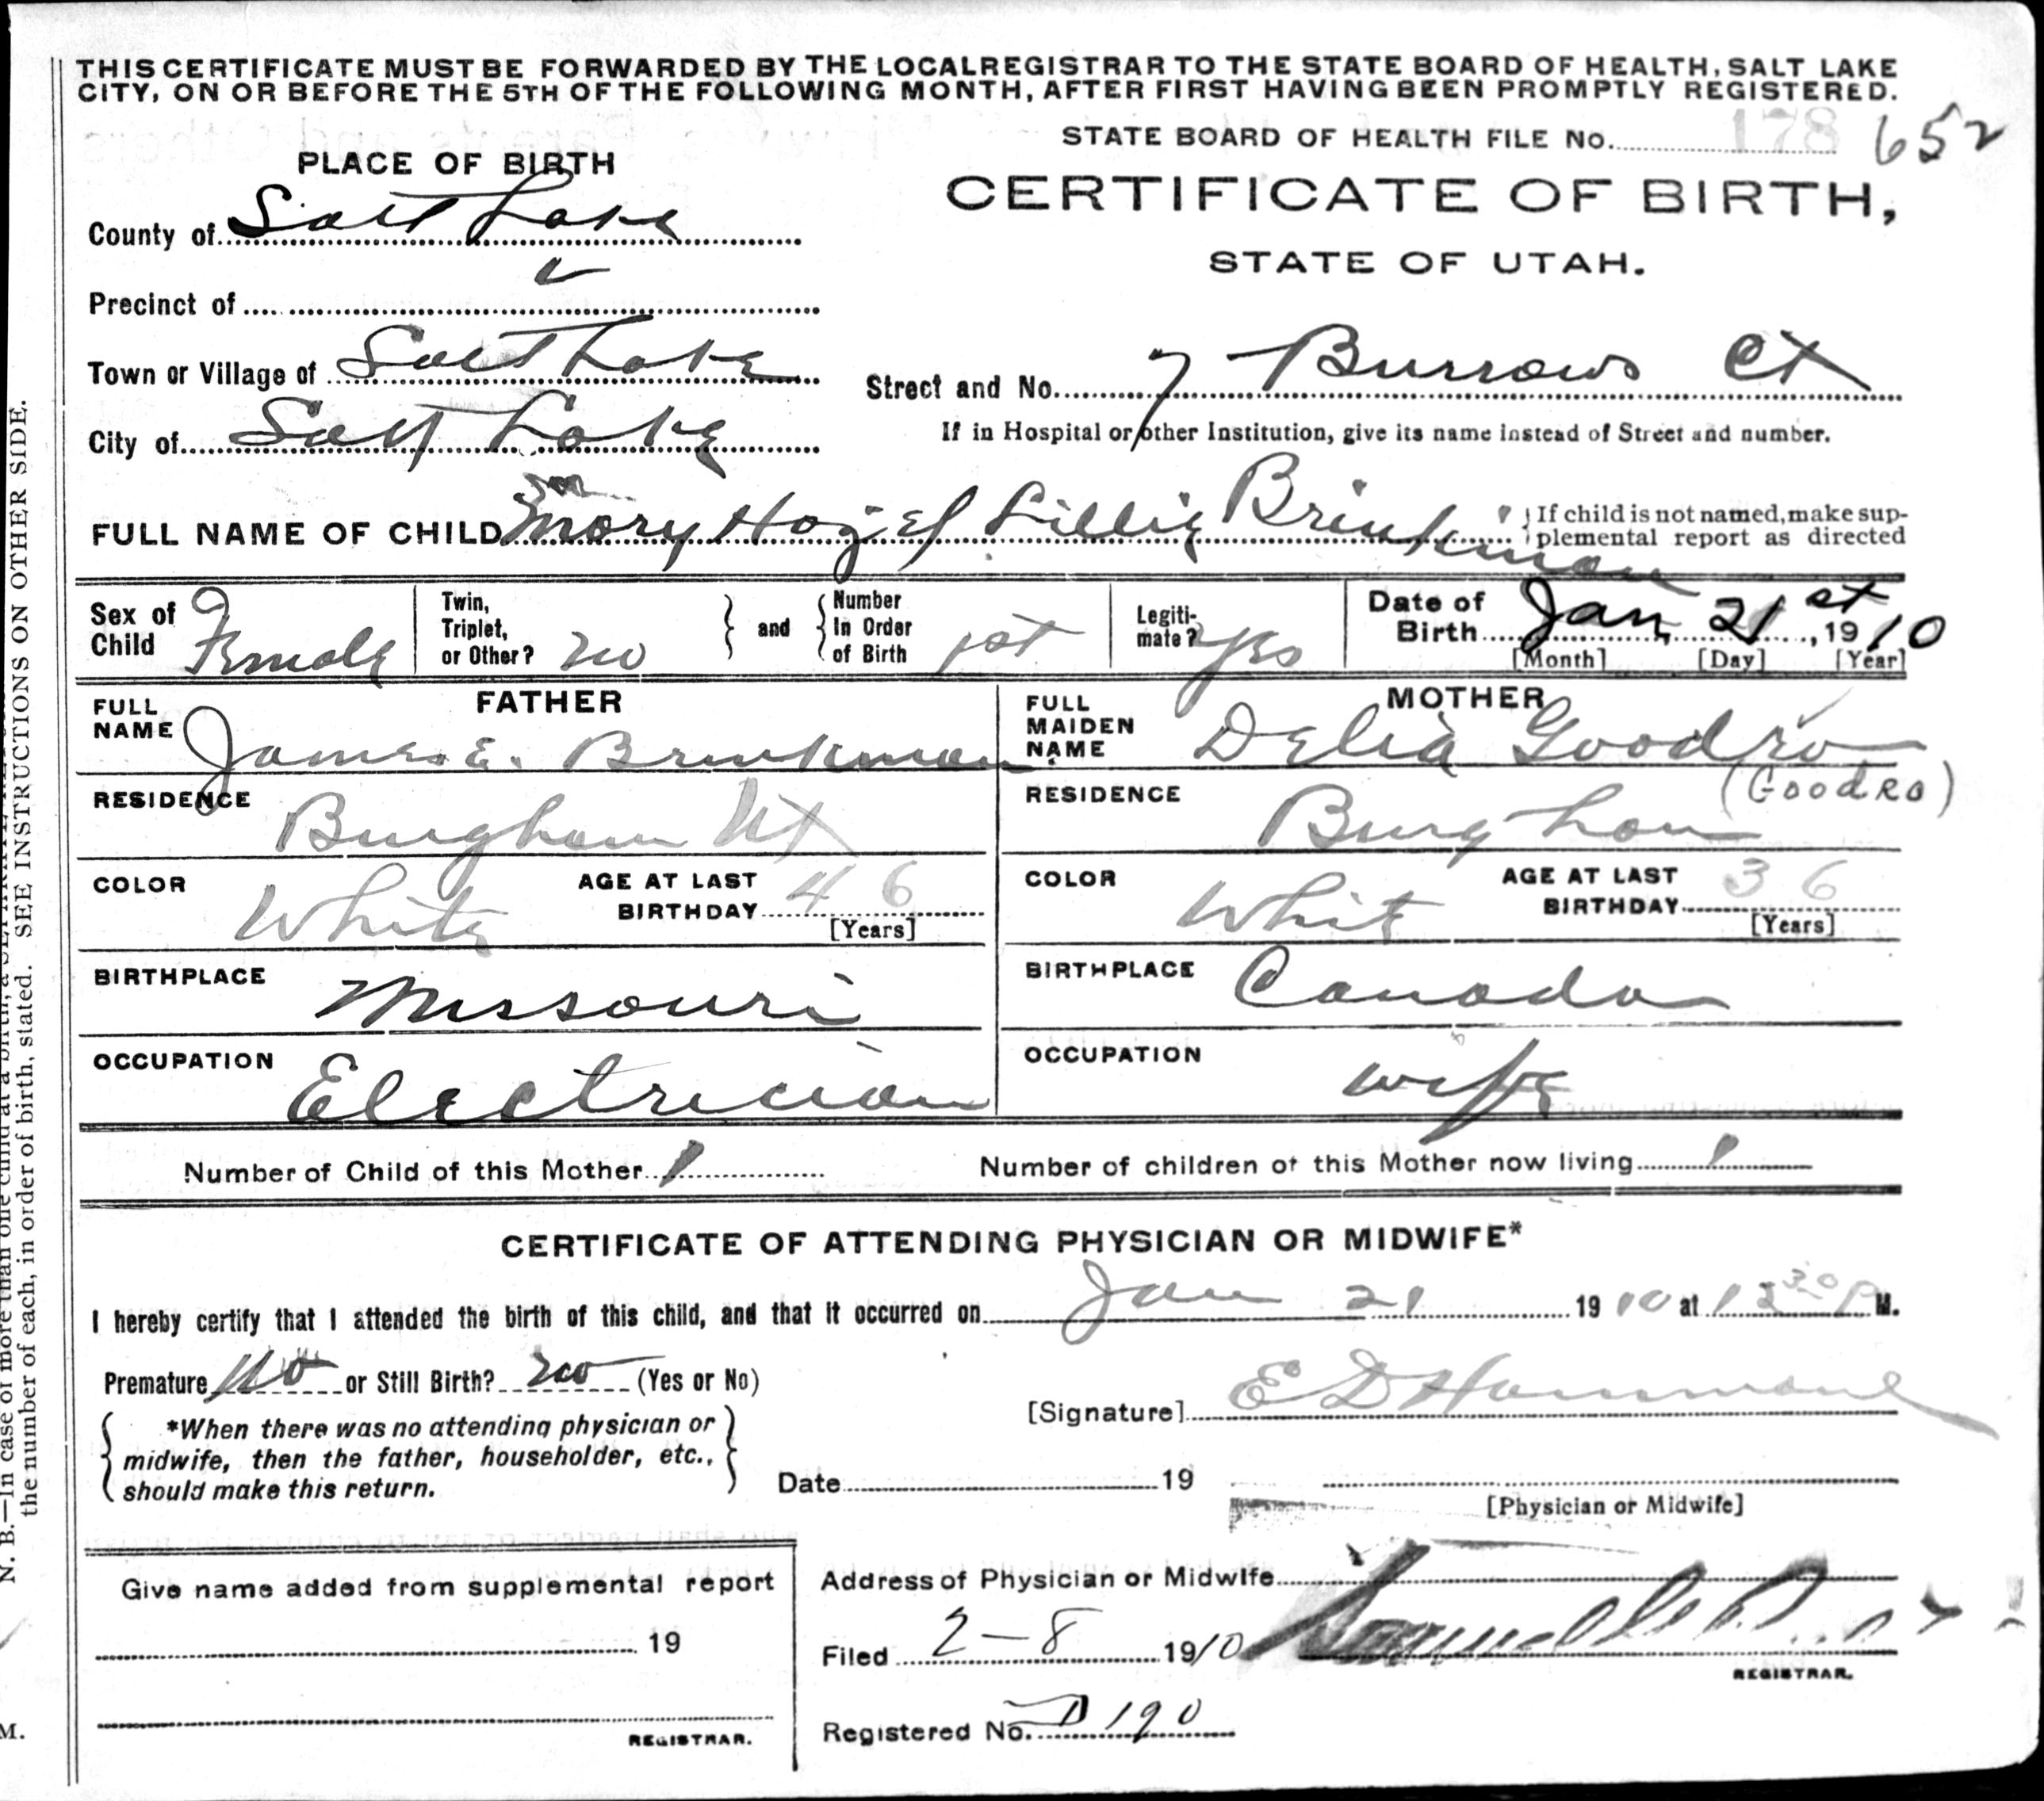 THIS CERTIFICATE MUST BE FORWARDED BY THE LOCAL REGISTRAR TO THE STATE BOARD OF HEALTH, SALT LAKE
CITY, ON OR BEFORE THE 5TH OF THE FOLLOWING MONTH, AFTER FIRST HAVING BEEN PROMPTLY REGISTERED.
STATE BOARD OF HEALTH FILE No. 178 652
PLACE OF BIRTH
CERTIFICATE OF BIRTH,
STATE OF UTAH.
County of Salt Lake
Precinct of
Town or Village of Salt Lake
Street and No. 7 Burrows Ct
City of Salt Lake
If in Hospital or other Institution, give its name instead of Street and number.
FULL NAME OF CHILD Mary Hazel Lillie Brinkman
If child is not named, make sup-
plemental report as directed
Sex of Child Female
Twin, Triplet, or Other? no
and Number In Order of Birth 1st
Legiti-mate? yes
Date of Birth Jan, 21st, 1910
[Month] [Day] [Year]
FATHER
FULL NAME James E. Brinkman
MOTHER
FULL MAIDEN NAME Delia Goodro
(GoodRo)
RESIDENCE Bingham Ut
RESIDENCE Bingham
COLOR White
AGE AT LAST BIRTHDAY 46
[Years]
COLOR White
AGE AT LAST BIRTHDAY 36
[Years]
BIRTHPLACE Missouri
BIRTHPLACE Canada
OCCUPATION Electrician
OCCUPATION wife
Number of Child of this Mother 1
Number of children of this Mother now living 1
CERTIFICATE OF ATTENDING PHYSICIAN OR MIDWIFE*
I hereby certify that I attended the birth of this child, and that it occurred on Jan 21 1910 at 12 30 P M.
Premature no or Still Birth? no (Yes or No)
*When there was no attending physician or
midwife, then the father, householder, etc.,
should make this return.
[Signature] E D Hammond
Date 19
[Physician or Midwife]
Give name added from supplemental report
19
REGISTRAR.
Address of Physician or Midwife
Filed 2-8 1910
REGISTRAR.
Registered No. D 190
N. B.—In case of more than one child at a birth, a
the number of each, in order of birth, stated. SEE INSTRUCTIONS ON OTHER SIDE.
M.